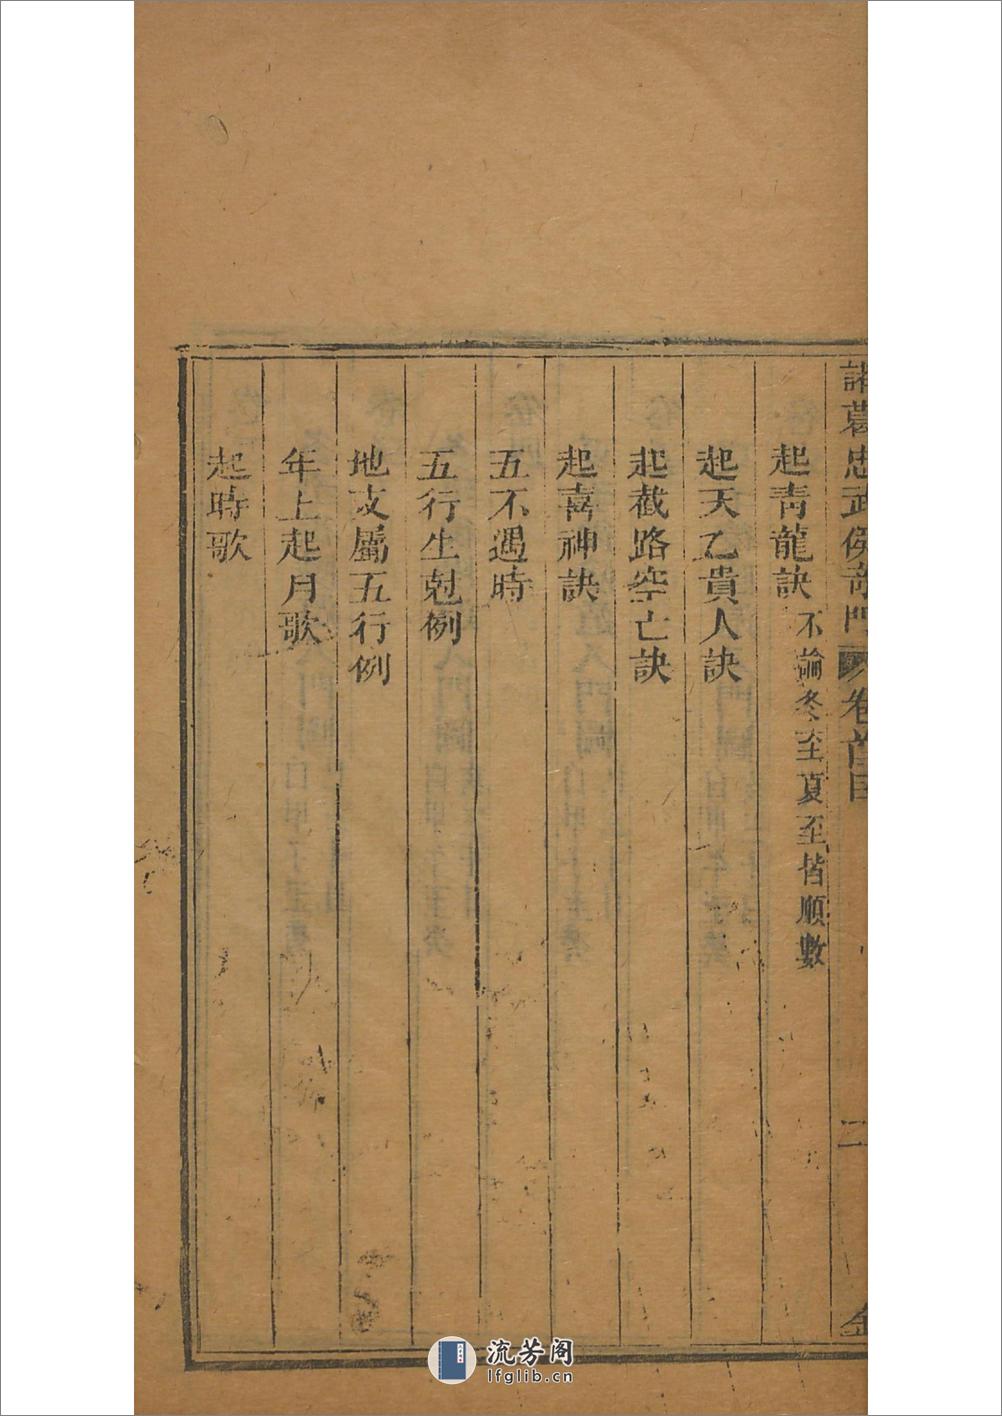 諸葛忠武侯奇門 卷首目 二
起靑龍訣 不論冬至夏至皆順數
起天乙貴人訣
起截路空亡訣
起喜神訣
五不遇時
五行生剋例
地支屬五行例
年上起月歌
起時歌
流芳阁
lfglib.cn